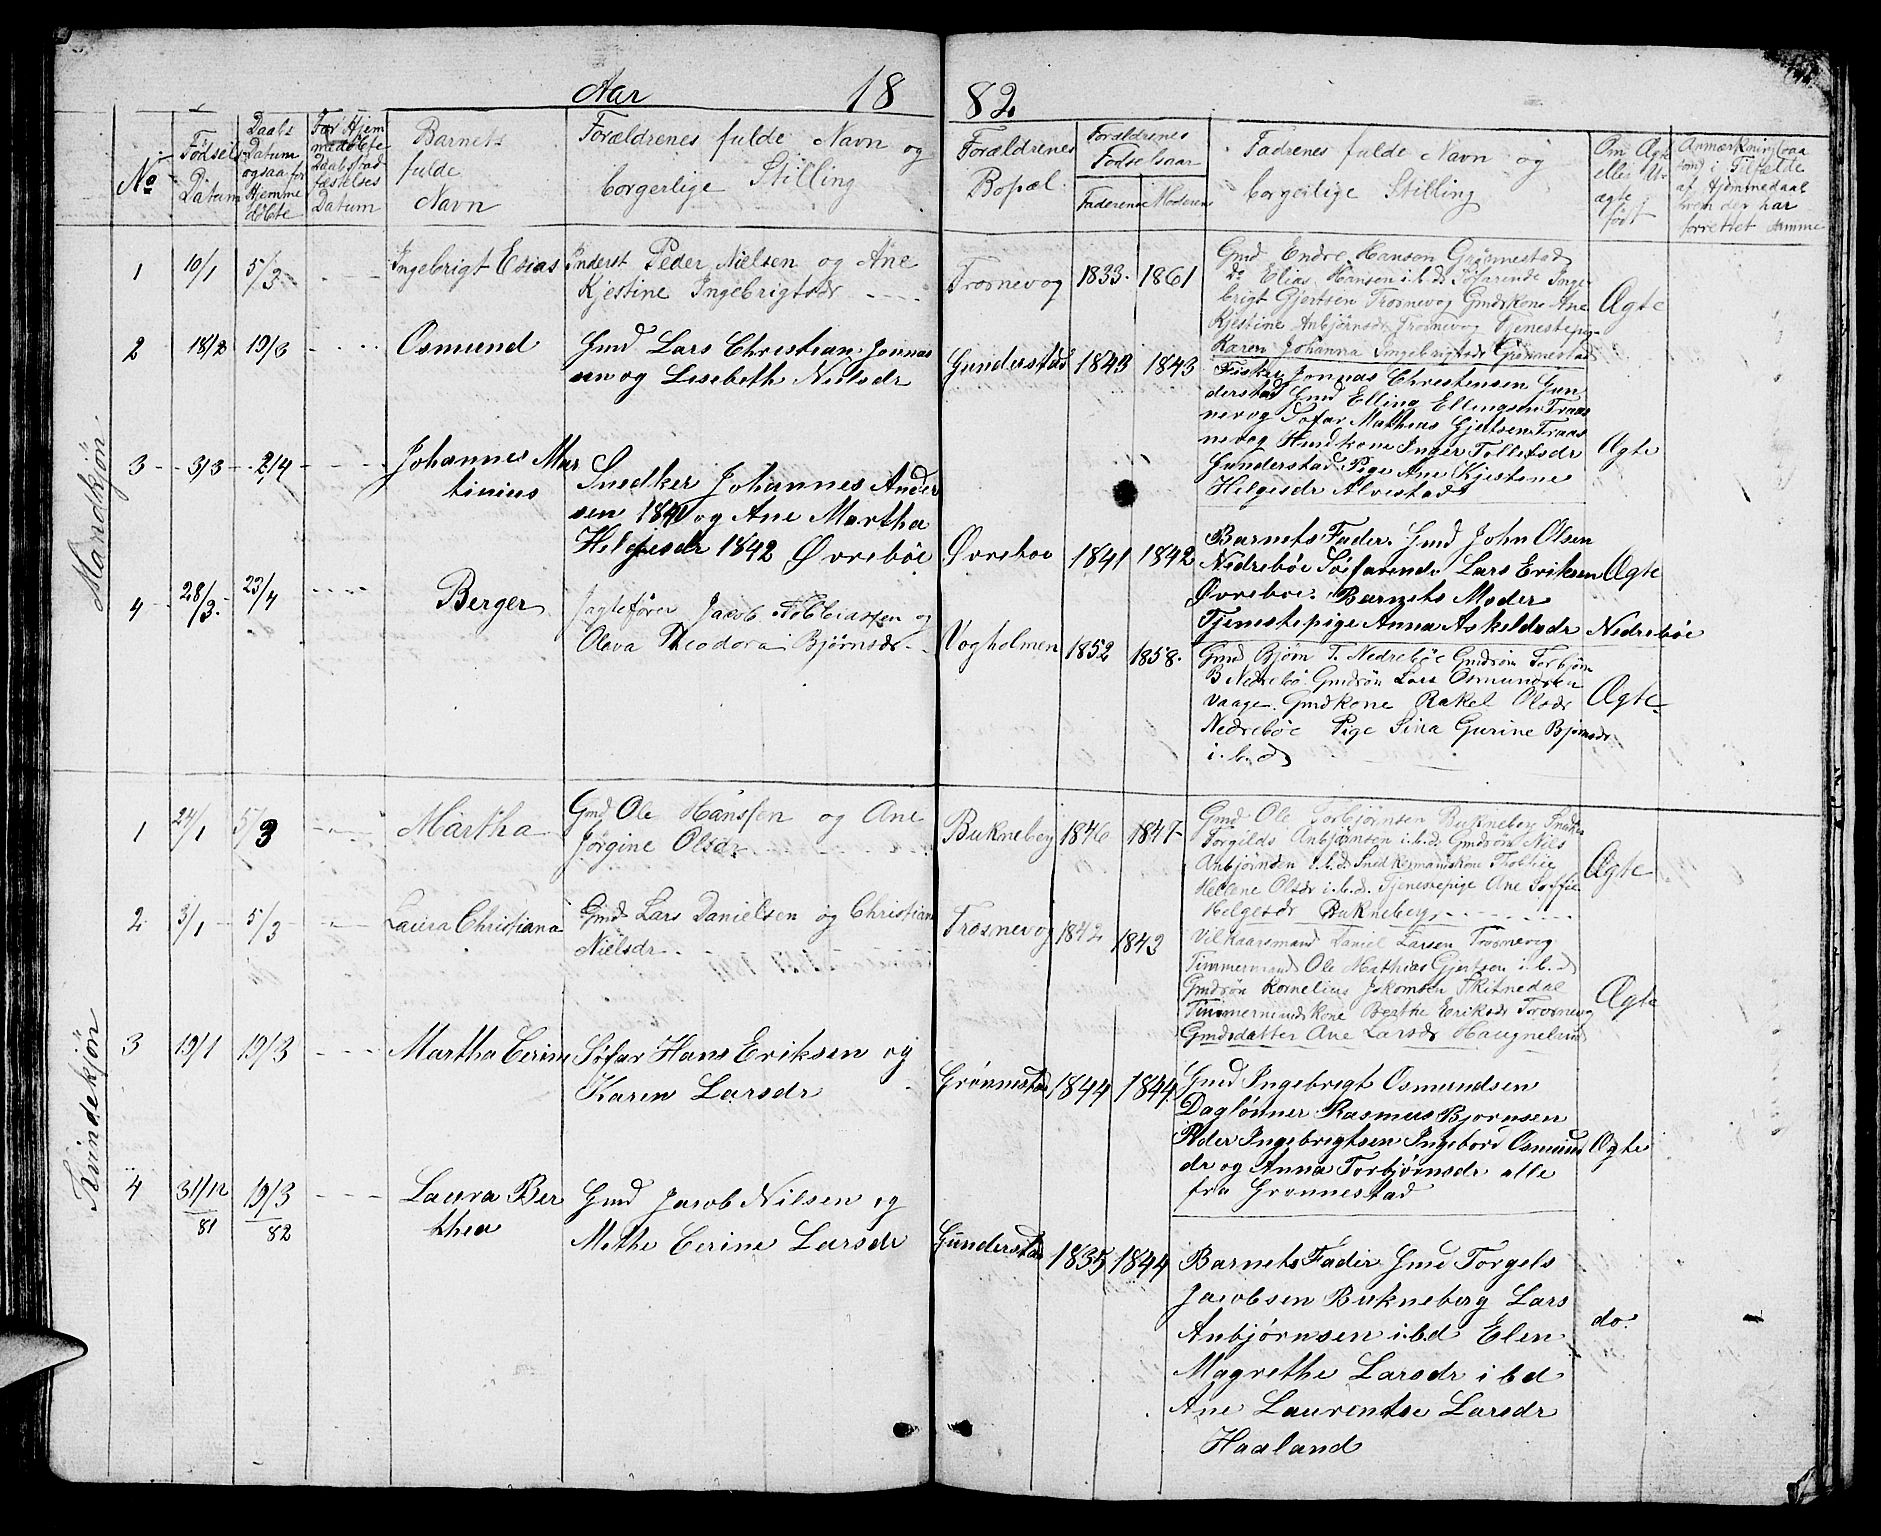 Aar 18 82
No
Fødsels Datum
Daabs Datum ogsaa for Hjemme døbte
For Hjem medøbte Daabsstad fæstelses Datum
Barnets fulde Navn
Forældrenes fulde Navn og borgerlige Stilling
Forældrenes Bopæl
Forældrenes Fødselsaar
Faderens Moderens
Fadrenes fulde Navn og borgerlige Stilling
Om Ægte eller U- ægte født
Anmærkning saa som i Tilfælde af Hjemmedaab hvem der har forrettet samme
Mandkjøn
1 10/1 5/3 Ingebrigt Esias
Inderst Peder Nielsen og Ane
Kjestine Ingebrigtsdr
Trosnevog 1833. 1861
Gmd Endre Hansen Grønnestad
Do Elias Hansen i.b.d. Søfarende Inge-
brigt Gjertsen Trosnevog Gmdskone Ane
Kjestine Anbjørnsdr Trosnevog Tjenestepig-
Karen Johanna Ingebrigtsdr Grønnestad
Ægte
2 18/2 19/3 Osmund
Gmd Lars Christian Jonnas
sen og Lisebeth Nielsdr
Gunderstad 1843 1843
Fisker Jonnas Christensen Gun
derstad Gmd Elling Ellingsen Traas
nevog Søfar Mathias Gjertsen Traas
nevog Hmdkone Inger Tolletsdr
Gunderstad Pige Ane Kjestene
Helgesdr Alvestad
Ægte
3 3/3 2/4 Johannes Mar
tinius
Snedker Johannes Ander
sen 1841 og Ane Martha
Helgesdr 1842 Øvrebøe
Øvreboe 1841 1842
Barnets Fader. Gmd John Olsen
Nedrebøe Søfarende Lars Eriksen
Øvreboe. Barnets Moder
Tjenestepige Anna Askeldsdr Nedrebøe
Ægte
4 28/3. 23/4 Berger
Jagtefører Jacob Tobbiassen og
Oleva Theodora Bjørnsdr
Vogholmen 1852 1858.
Gmd Bjørn T. Nedrebøe Gmdsøn Torbjørn
B Nedrebø. Gmdsøn Lars Osmundsen
Vaage. Gmdkone Rakel Olsdr
Nedrebøe Pige Sina Gurine Bjørnsdr
i.b.d
Ægte
Kvindekjøn
1 24/1 5/3 Martha
Gmd Ole Hanssen og Ane
Jørgine Olsdr
Bukneberg 1846 1847
Gmd Ole Torbjørnsen Bukneberg
Torgilds Anbjørnsen i.b.d. Gmdsøn Nils
Anbjørnsen i.b.d. Snedkermandskone
Hellene Olsdr i.b.d. Tjenestepige Ane Soffie
Helgesdr Bukneberg
Ægte
2 3/1 5/3 Laura Christiana
Gmd Lars Danielsen og Christiana
Nielsdr.
Trosnevog 1842 1843
Vilkaarsmand Daniel Larsen Trosnevog
Timmermand Ole Mathias Gjertsen i.b.d
Gmdsøn Kornelius Jakomsen Skitnedal
Timmermandskone Berthe Eriksdr Trosnevog
Gmdsdatter Ane Larsdr Haugnelund
Ægte
3 19/1 19/3 Martha Cerine
Søfar Hans Eriksen og
Karen Larsdr
Grønnestad 1844 1844
Gmd Ingebregt Osmundsen
Daglønner Rasmus Bjørnsen
Peder Ingebregtsen Ingebor Osmund
dr og Anna Torbjørnsdr alle
fra Grønnestad
Ægte
4 31/12 81 19/3 82 Laura Ber
thea
Gmd Jacob Nilsen og
Methe Cerine Larsdr
Gunderstad 1835 1844
Barnets Fader Gmd Torgels
Jacobsen Bukneberg Lars
Anbjørnsen i.b.d Elen
Magrethe Larsdr i b d
Ane Laurentse Larsdr
Haaland
do.